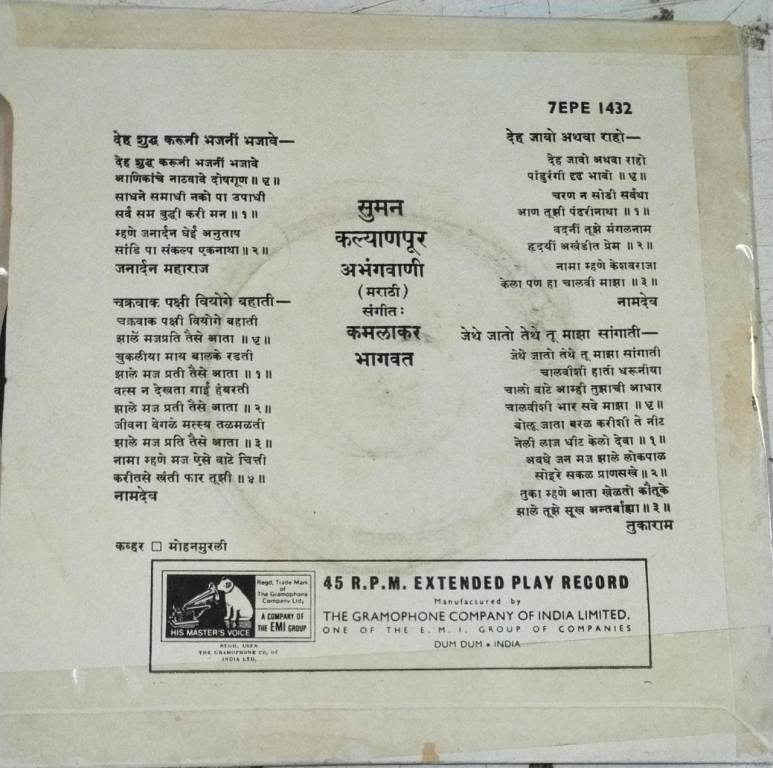 7EPE 1432
देह शुद्ध करूनी भजनीं भजावे—
देह शुद्ध करूनी भजनीं भजावे
आणिकांचे नाठवावे दोषगूण ॥ धृ ॥
साधने समाधी नको पा उपाधी
सर्व सम बुद्धी करी मन ॥ १ ॥
म्हणे जनार्दन घेईं अनुताप
सांडि पा संकल्प एकनाथा ॥ २ ॥
जनार्दन महाराज
चक्रवाक पक्षी वियोगे बहाती—
चक्रवाक पक्षी वियोगे बहाती
झालें मजप्रति तैसे आता ॥ धृ ॥
चुकलीया माय बालके रडती
झाले मज प्रती तैसे आता ॥ १ ॥
वत्स न देखता गाई हंबरती
झाले मज प्रती तैसे आता ॥ २ ॥
जीवना वेगळे मत्स्य तळमळती
झाले मज प्रति तैसे आता ॥ ३ ॥
नामा म्हणे मज ऐसे वाटे चित्ती
करीतसे खंती फार तूझी ॥ ४ ॥
नामदेव
कव्हर □ मोहनमुरली
सुमन
कल्याणपूर
अभंगवाणी
(मराठी)
संगीत:
कमलाकर
भागवत
देह जावो अथवा राहो—
देह जावो अथवा राहो
पांडुरंगी दृढ भावो ॥ धृ ॥
चरण न सोडी सर्वथा
आण तूझी पंढरीनाथा ॥ १ ॥
वदनीं तूझे मंगलनाम
हृदयीं अखंडीत प्रेम ॥ २ ॥
नामा म्हणे केशवराजा
केला पण हा चालवी माझा ॥ ३ ॥
नामदेव
जेथे जातो तेथे तू माझा सांगाती—
जेथे जातो तेथे तू माझा सांगाती
चालवीशी हाती धरूनीया
चालो वाटे आम्ही तुझाची आधार
चालवीशी भार सवे माझा ॥ धृ ॥
बोलू जाता बरळ करीशी ते नीट
नेली लाज धीट केलो देवा ॥ १ ॥
अवघे जन मज झाले लोकपाळ
सोइरे सकळ प्राणसखे ॥ २ ॥
तुका म्हणे आता खेळतो कौतूके
झाले तूझे सूख अन्तर्बाह्या ॥ ३ ॥
तुकाराम
HIS MASTER'S VOICE
Regd. Trade Mark
of
The Gramophone
Company Ltd.
A COMPANY OF
THE EMI GROUP
REGD. USER
THE GRAMOPHONE CO. OF
INDIA LTD.
45 R.P.M. EXTENDED PLAY RECORD
Manufactured by
THE GRAMOPHONE COMPANY OF INDIA LIMITED.
ONE OF THE E. M. I. GROUP OF COMPANIES
DUM DUM • INDIA